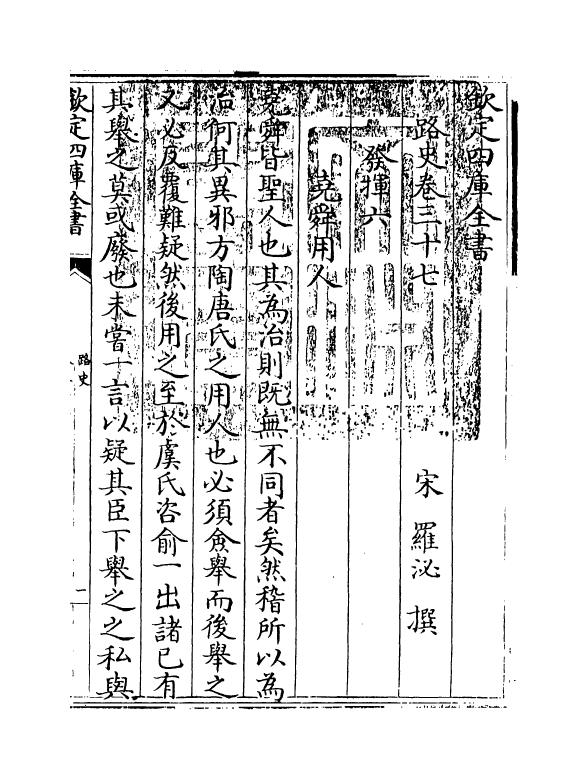 欽定四庫全書
路史卷三十七
宋 羅泌 撰
發揮六
堯舜用人
堯舜皆聖人也其為治則既無不同者矣然稽所以為
治何其異邪方陶唐氏之用人也必須僉舉而後舉之
又必反覆難疑然後用之至於虞氏咨俞一出諸已有
其舉之莫或廢也未嘗一言以疑其臣下舉之之私與
欽定四庫全書
路史